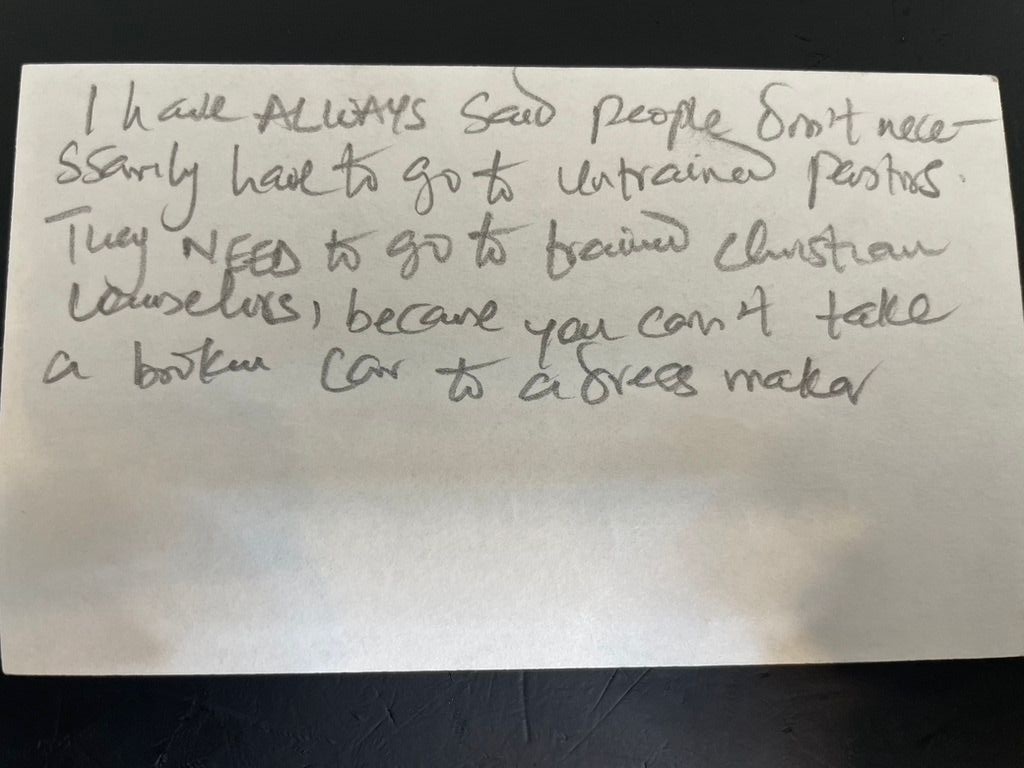 I have ALWAYS said people don't nece-
ssarily have to go to untrained pastors.
They NEED to go to trained Christian
Counselors, because you can't take
a broken car to a dress maker